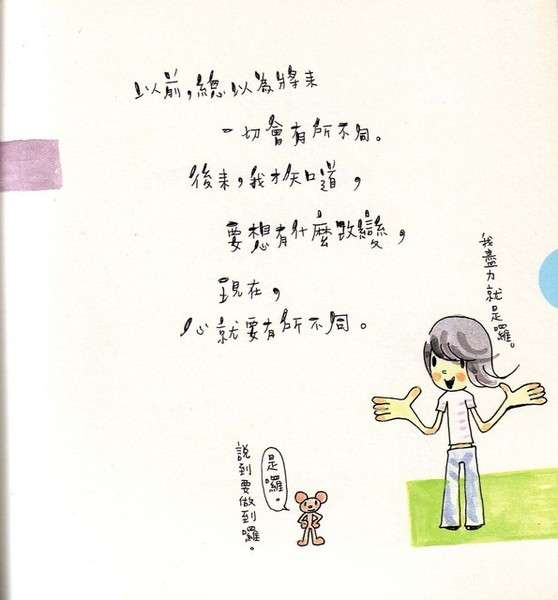 以前，總以為將來
一切會有所不同。
後來，我才知道，
要想有什麼改變，
現在，
心就要有所不同。
我盡力就是囉。
是囉。
說到要做到囉。